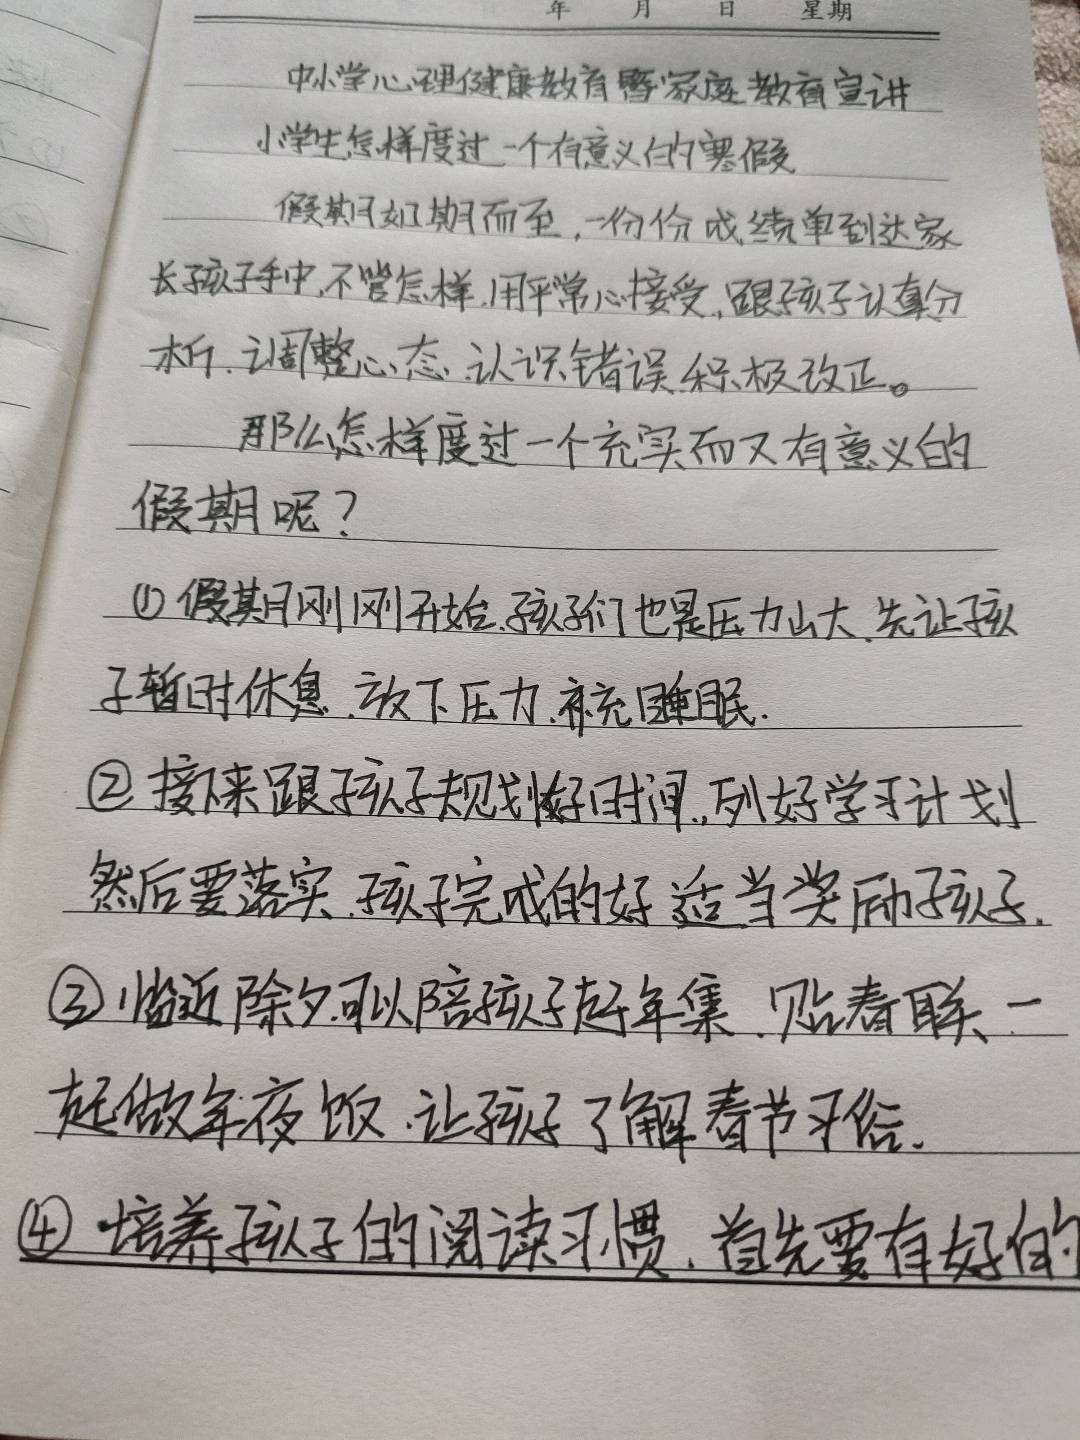 年 月 日 星期
中小学心理健康教育暨家庭教育宣讲
小学生怎样度过一个有意义的寒假
假期如期而至,一份份成绩单到达家
长孩子手中,不管怎样,用平常心接受,跟孩子认真分
析、调整心态、认识错误积极改正。
那么怎样度过一个充实而又有意义的
假期呢?
①假期刚刚开始,孩子们也是压力山大,先让孩
子暂时休息、放下压力、补充睡眠.
②接下来跟孩子规划好时间,列好学习计划
然后要落实,孩子完成的好适当奖励孩子.
③临近除夕可以陪孩子赶年集、贴春联、一
起做年夜饭,让孩子了解春节习俗.
④培养孩子的阅读习惯,首先要有好的